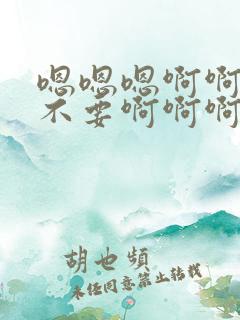 嗯嗯嗯啊啊
不要啊啊啊
胡也频
未经同意禁止转载